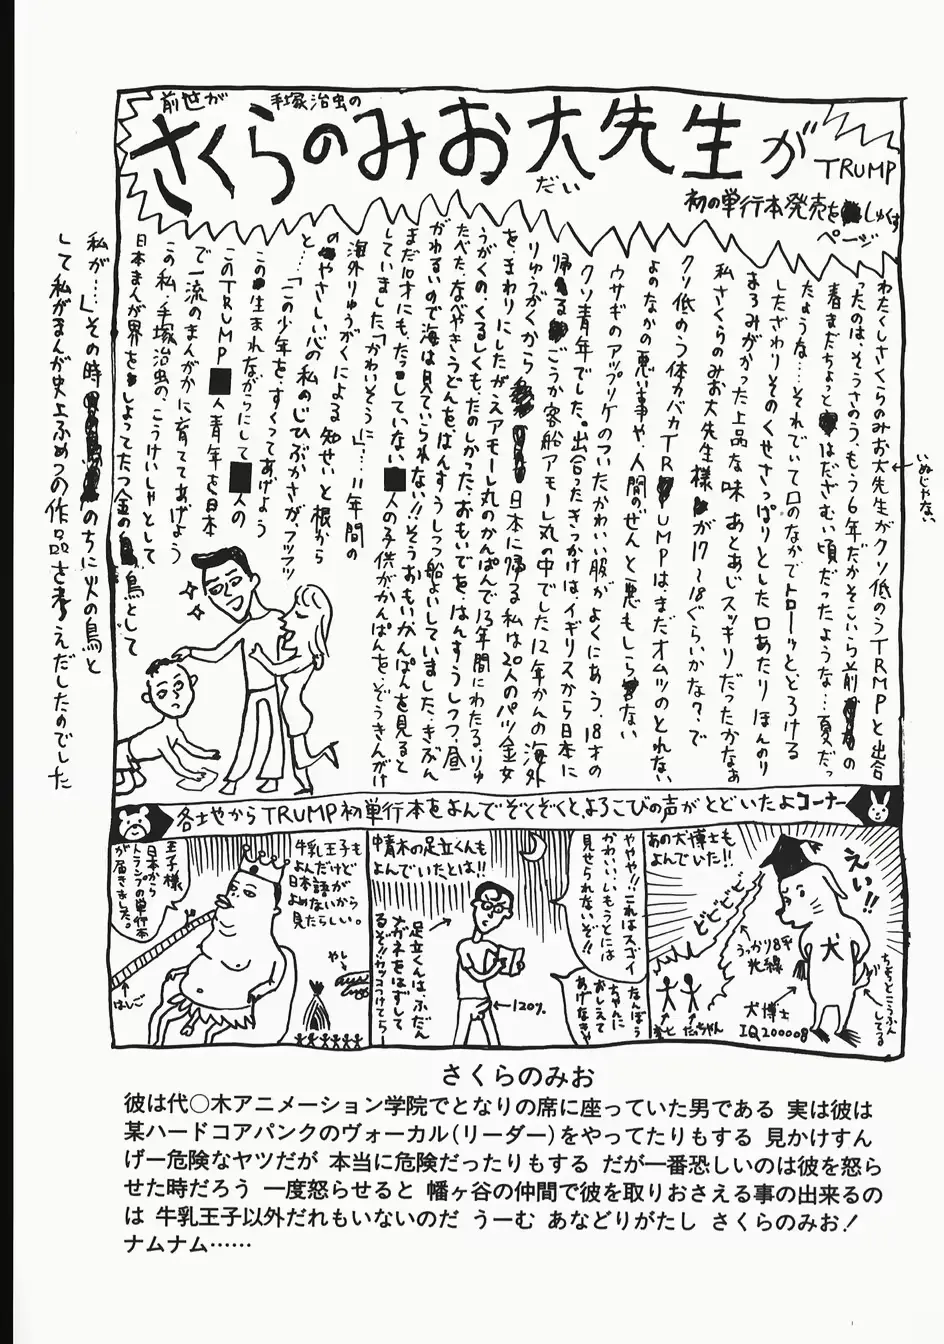 前世が 手塚治虫の
さくらのみお大先生が
だい
TRUMP
初の単行本発売をしゅくす
ページ
わたくしさくらのみお大先生がクソ低のうTRUMPと出合
いぬじゃない
ったのは、そうさのう、もう6年だかそこいら前の
春まだちょっとはだざむい頃だったような…夏だっ
たような…それでいて口のなかでトローッととろける
したざわりそのくせさっぱりとした口あたりほんのり
まろみがかった上品な味あとあじスッキリだったかなぁ
私さくらのみお大先生様が17〜18ぐらいかな?で
クソ低のう体力バカTRUMPは、まだオムツのとれない
よのなかの悪い事や、人間のぜんと悪もしらない
ウサギのアップリケのついたかわいい服がよくにあう、18才の
クソ青年でした。出合ったきっかけは、イギリスから日本に
帰るごうか客船アモーレ丸の中でした12年かんの海外
りゅうがくから日本に帰る私は20人のパツ金女
を、まわりにしたがえアモーレ丸のかんぱんで13年間にわたる、りゅ
うがくの、くるしくも、たのしかった、おもいでを、はんすうしつつ、昼
たべた、なべやきうどんを、はんすうしつつ船よいしていました、きぶん
がわるいので海は見ていられない!!そうおもいかんぱんを見ると
まだ10才にもたっしていない■人の子供がかんぱんを、ぞうきんがけ
していました「かわいそうに」…11年間の
海外りゅうがくによる知せいと根から
のやさしい心の私のじひぶかさが、フツフツ
と…「この少年を、すくってあげよう
この生まれながらにして■人の
このTRUMP■人青年を日本
で一流のまんがかに育ててあげよう
この私、手塚治虫の、こうけいしゃとして
日本まんが界をしょってたつ金の鳥として
私が…」その時のちに火の鳥と
して私がまんが史上ふめつの作品を考えだしたのでした
各土地からTRUMP初単行本をよんでぞくぞくと、よろこびの声がとどいたよコーナー
あの犬博士も
よんでいた!!
えい!!
ビビビビ
うっかり8平
光線
犬
犬博士
IQ200008
ちょっとこうふんしてる
だっちゃん
ややや!!これはスゴイ
かわいい、いもうとには
見せられないぞ!!
なんぼう
ちゃんに
おしえて
あげなきゃ
青木の足立くんも
よんでいたとは!!
足立くんは、ふだん
メガネをはずして
るぞ!!カッコつけてらー
120%
牛乳王子も
よんだけど
日本語が
よめないから
見たらしい。
王子様
日本から
トランプの単行本
が届きました。
はしご
やし
さくらのみお
彼は代○木アニメーション学院でとなりの席に座っていた男である 実は彼は
某ハードコアパンクのヴォーカル(リーダー)をやってたりもする 見かけすん
げー危険なヤツだが 本当に危険だったりもする だが一番恐しいのは彼を怒ら
せた時だろう 一度怒らせると 幡ヶ谷の仲間で彼を取りおさえる事の出来るの
は 牛乳王子以外だれもいないのだ うーむ あなどりがたし さくらのみお!
ナムナム……